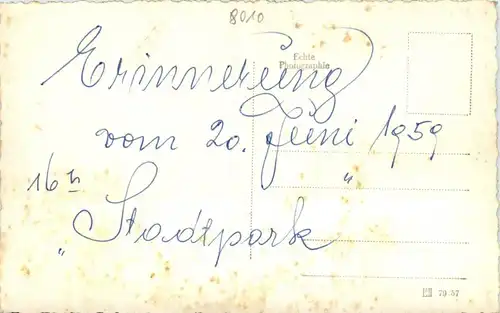 8010
Erinnerung
Echte
Photographie
vom 20. Juni 1959
16 h "
" Stadtpark
79 57